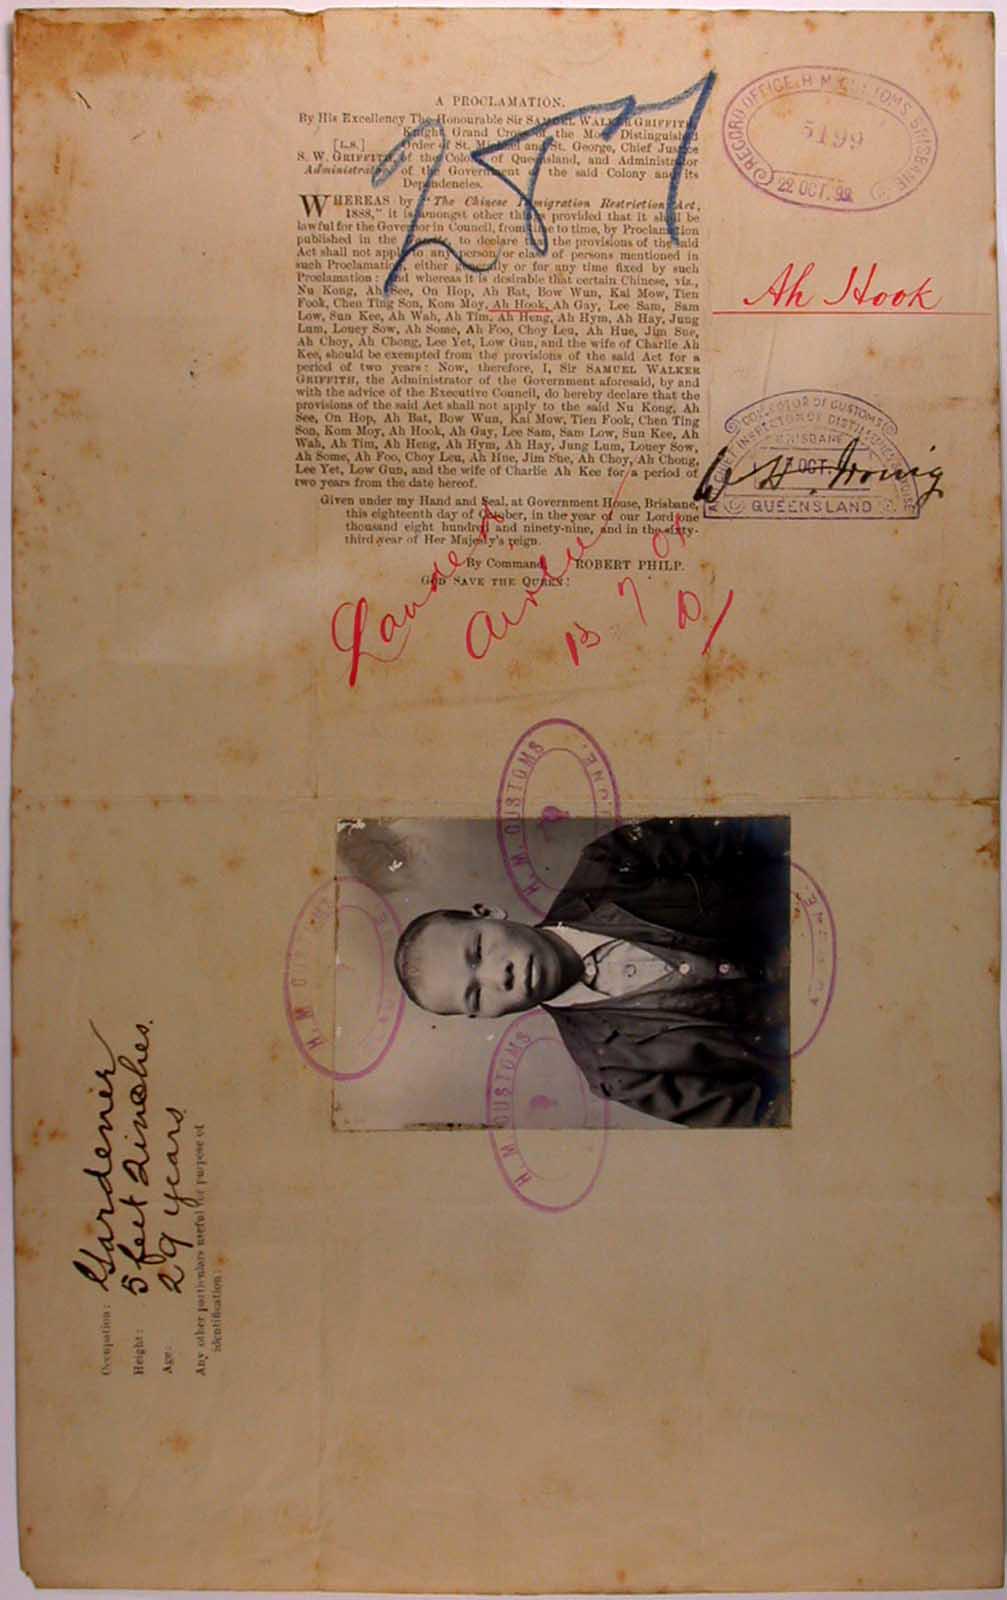 A PROCLAMATION.
By His Excellency The Honourable Sir SAMUEL WALKER GRIFFITH,
Knight Grand Cross of the Most Distinguished
[L.S.] Order of St. Michael and St. George, Chief Justice
S. W. GRIFFITH, of the Colony of Queensland, and Administrator
Administrator. of the Government of the said Colony and its
Dependencies.
WHEREAS by "The Chinese Immigration Restriction Act,
1888," it is amongst other things provided that it shall be
lawful for the Governor in Council, from time to time, by Proclamation
published in the Gazette, to declare that the provisions of the said
Act shall not apply to any person or class of persons mentioned in
such Proclamation, either generally or for any time fixed by such
Proclamation: And whereas it is desirable that certain Chinese, viz.,
Nu Kong, Ah See, On Hop, Ah Bat, Bow Wun, Kai Mow, Tien
Fook, Chen Ting Son, Kom Moy, Ah Hook, Ah Gay, Lee Sam, Sam
Low, Sun Kee, Ah Wah, Ah Tim, Ah Heng, Ah Hym, Ah Hay, Jung
Lum, Louey Sow, Ah Some, Ah Foo, Choy Leu, Ah Hue, Jim Sue,
Ah Choy, Ah Chong, Lee Yet, Low Gun, and the wife of Charlie Ah
Kee, should be exempted from the provisions of the said Act for a
period of two years: Now, therefore, I, Sir SAMUEL WALKER
GRIFFITH, the Administrator of the Government aforesaid, by and
with the advice of the Executive Council, do hereby declare that the
provisions of the said Act shall not apply to the said Nu Kong, Ah
See, On Hop, Ah Bat, Bow Wun, Kai Mow, Tien Fook, Chen Ting
Son, Kom Moy, Ah Hook, Ah Gay, Lee Sam, Sam Low, Sun Kee, Ah
Wah, Ah Tim, Ah Heng, Ah Hym, Ah Hay, Jung Lum, Louey Sow,
Ah Some, Ah Foo, Choy Leu, Ah Hue, Jim Sue, Ah Choy, Ah Chong,
Lee Yet, Low Gun, and the wife of Charlie Ah Kee for a period of
two years from the date hereof.
Given under my Hand and Seal, at Government House, Brisbane,
this eighteenth day of October, in the year of our Lord one
thousand eight hundred and ninety-nine, and in the sixty-
third year of Her Majesty's reign.
By Command, ROBERT PHILP.
GOD SAVE THE QUEEN!
257
RECORD OFFICE, H. M. CUSTOMS BRISBANE
5199
22 OCT. 99
Ah Hook
COLLECTOR OF CUSTOMS
CHIEF INSPECTOR OF DISTILLERIES
BRISBANE
17 OCT.
QUEENSLAND
W. H. Irving
Landed
13 7 01
H. M. CUSTOMS
H. M. CUSTOMS
H. M. CUSTOMS
Occupation: Gardener
Height: 5 feet 2 inches.
Age: 29 years
Any other particulars useful for purpose of
identification: